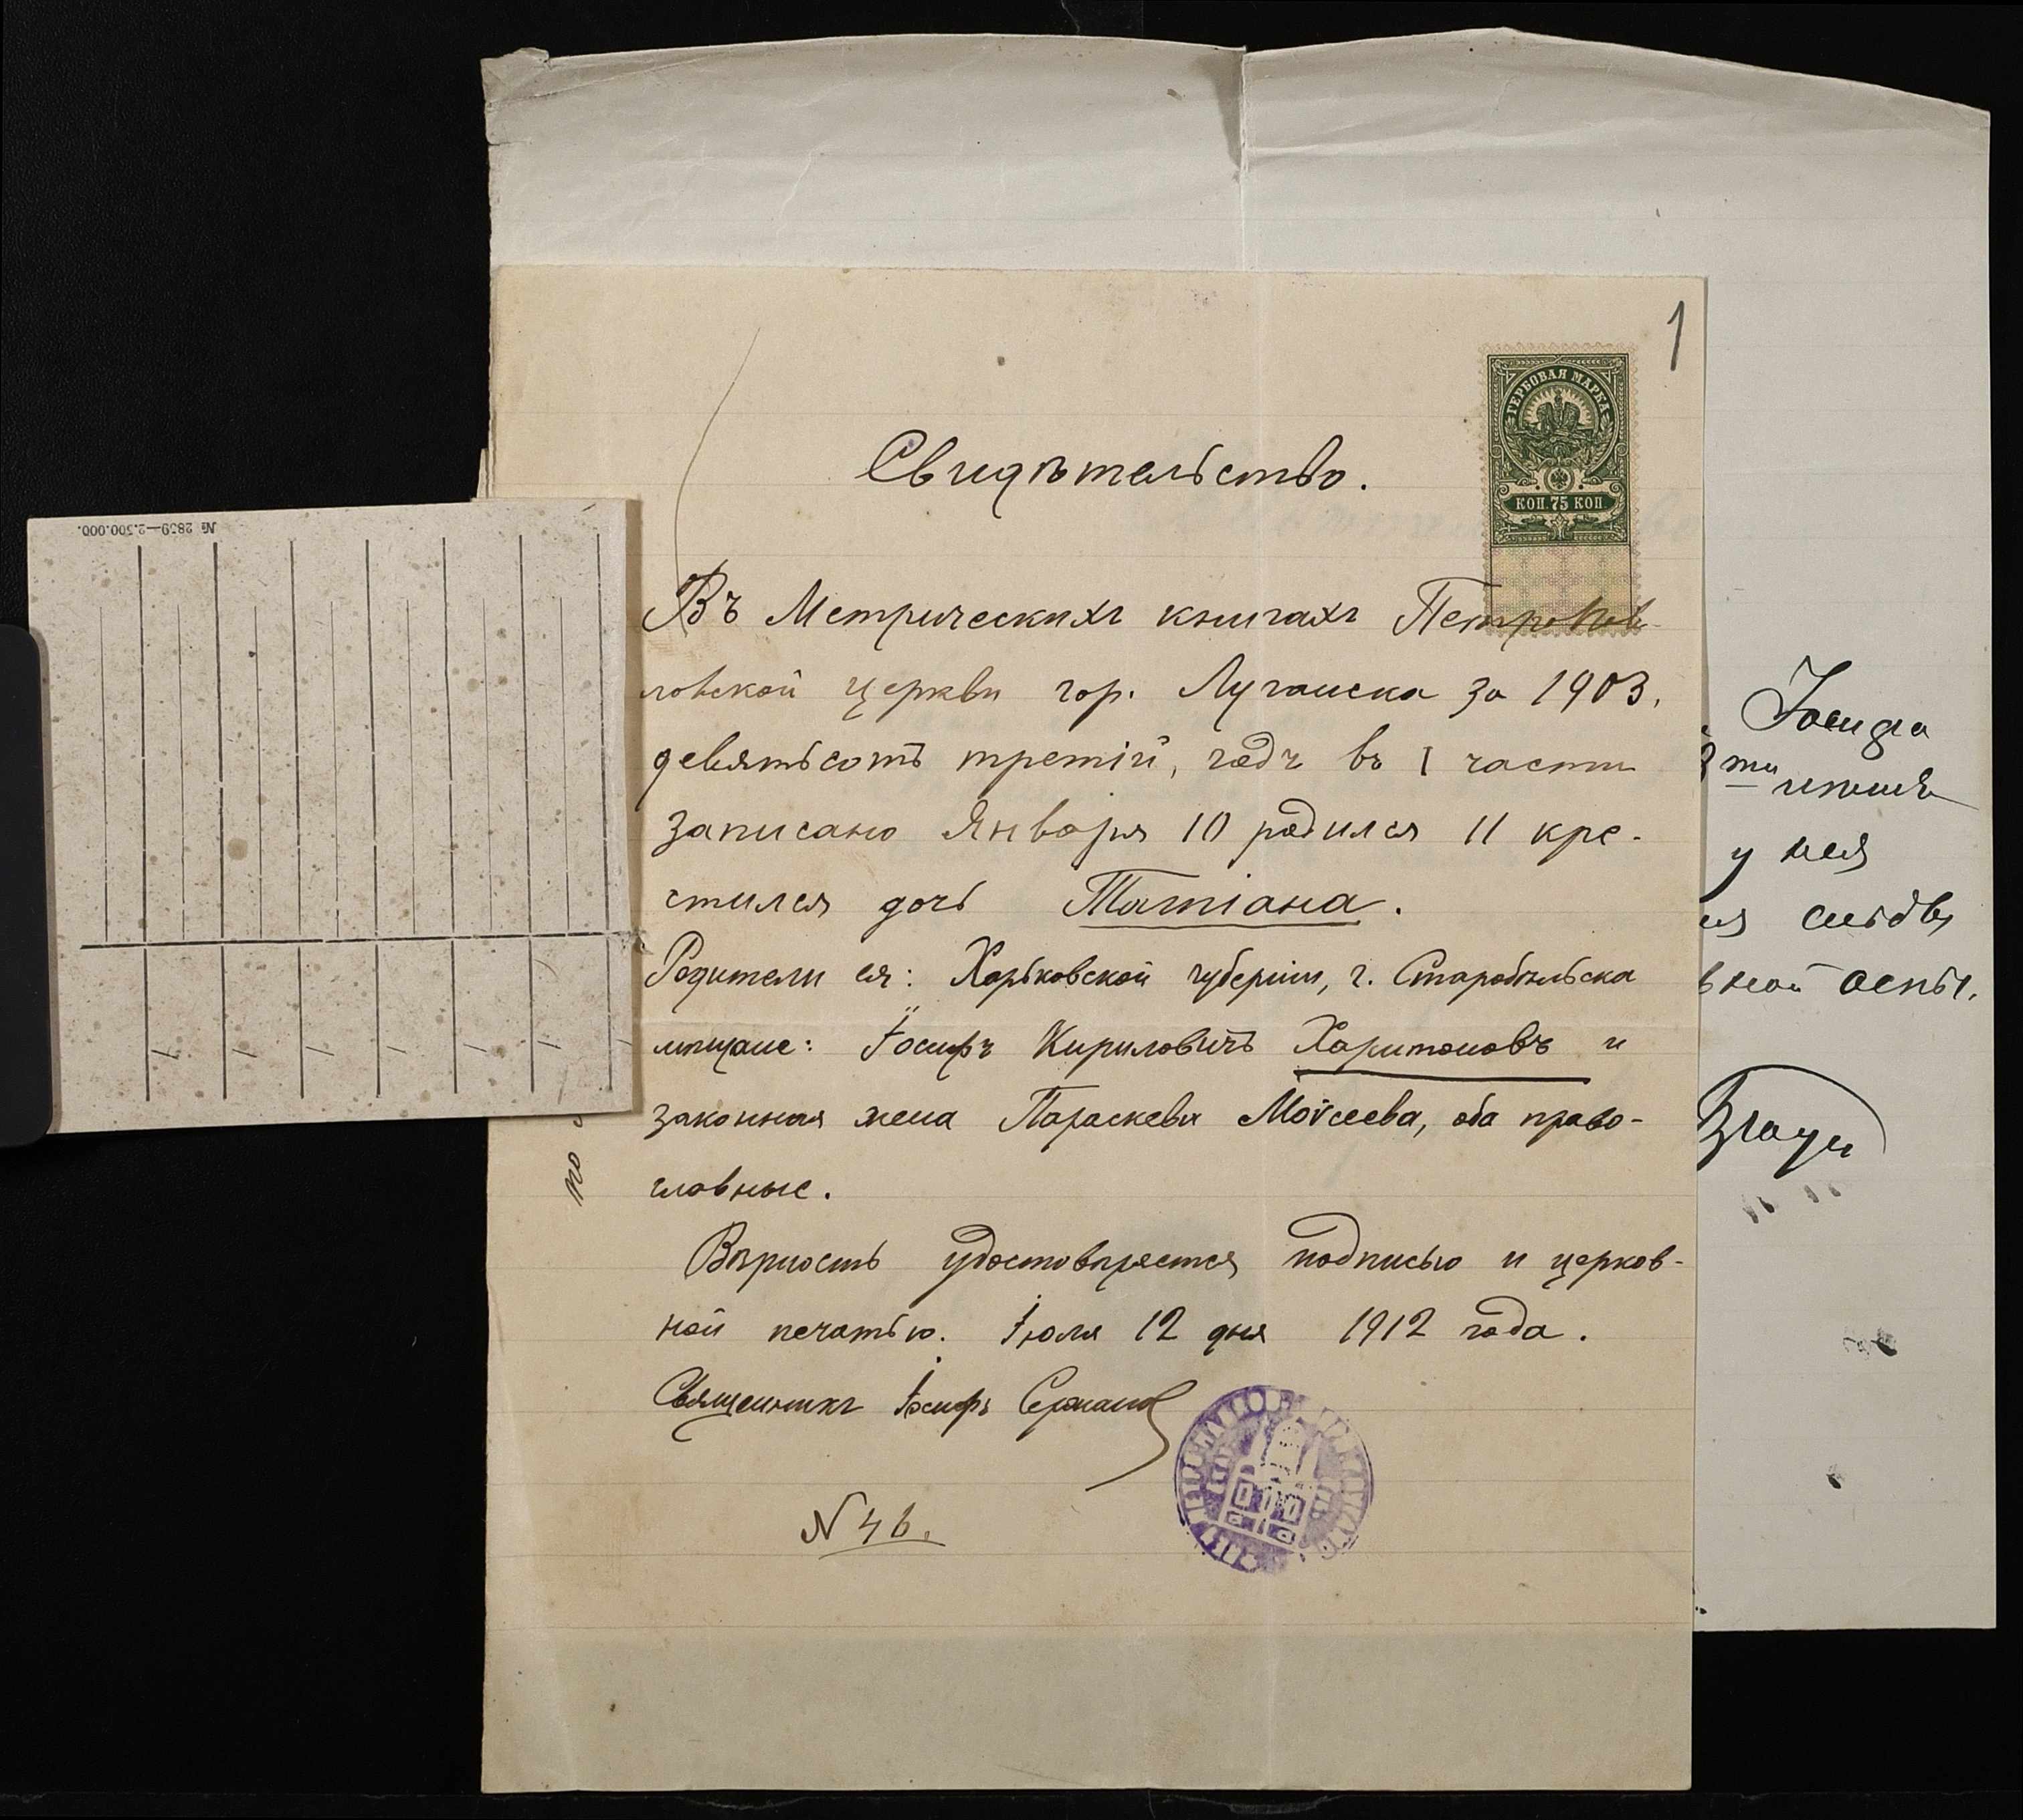 1
ГЕРБОВАЯ МАРКА
КОП. 75 КОП
Свидѣтельство.
Въ Метрическихъ книгахъ Петропав-
ловской церкви гор. Луганска за 1903,
девятьсотъ третій, годъ въ I части
записано Января 10 родился 11 кре-
стился дочь Татіана.
Родители ея: Харьковской губерніи, г. Старобѣльска
мѣщане: Іосифъ Кириловичъ Харитоновъ и
законная жена Параскева Моѵсеева, оба право-
славные.
Вѣрность удостовѣряется подписью и церков-
ной печатью. Іюля 12 дня 1912 года.
Священникъ Іосифъ
N 46.
№ 2859—2.500.000.
по
Іосифа
у нея
оспы.